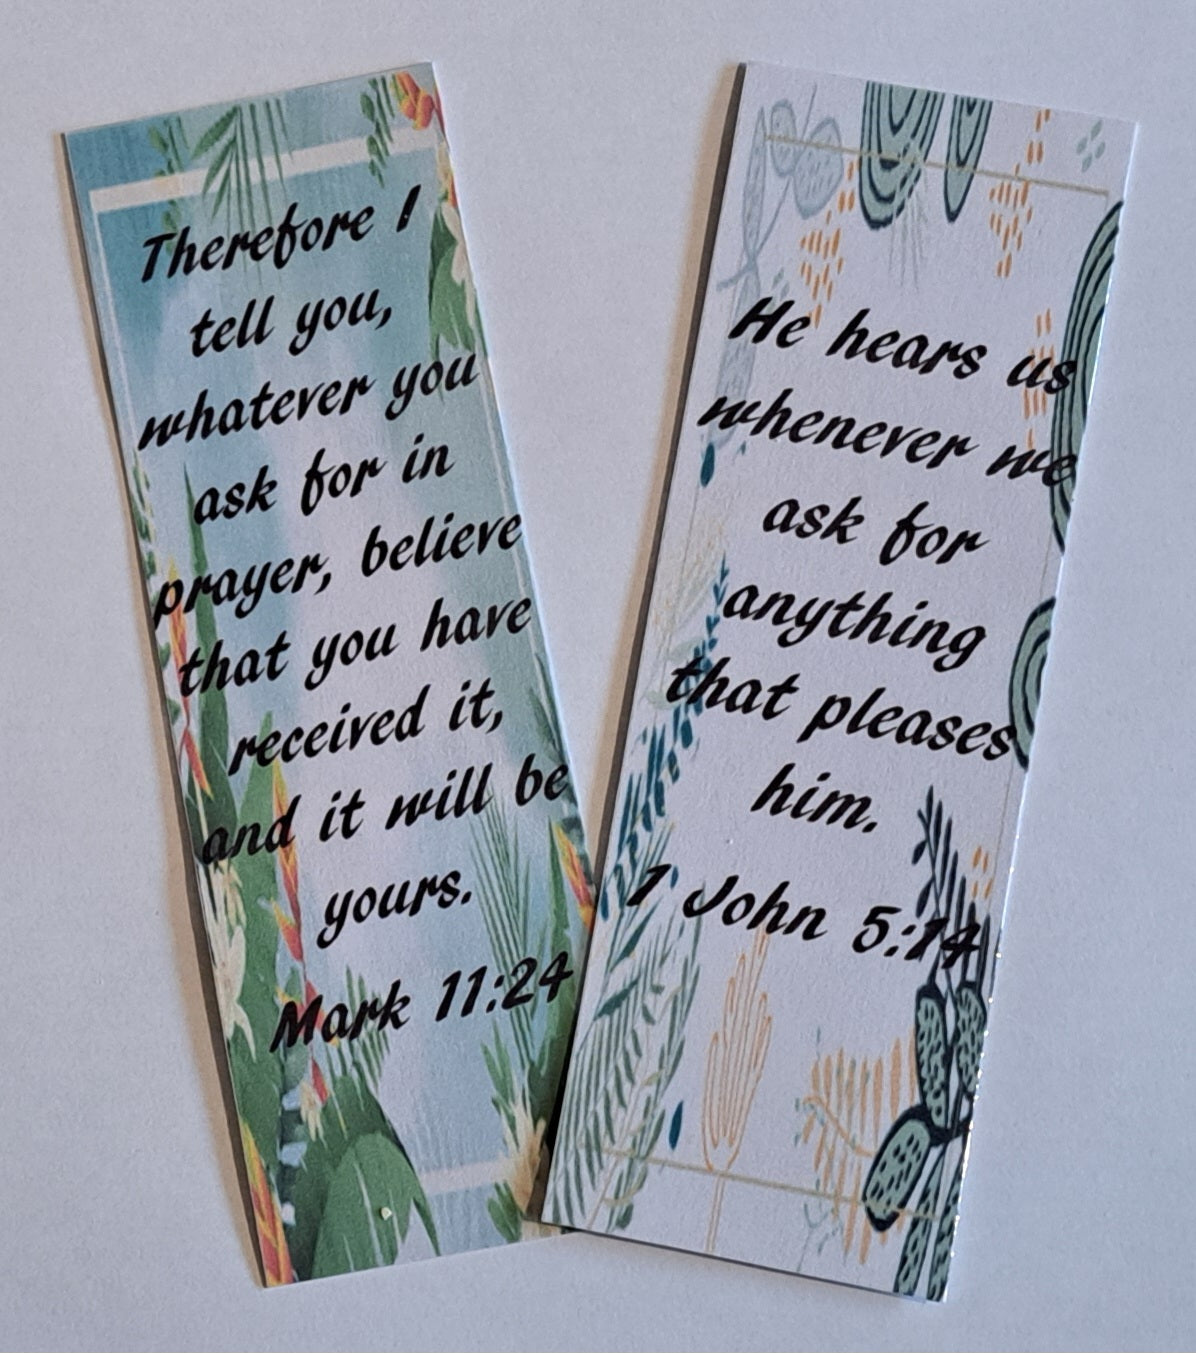 Therefore I
tell you,
whatever you
ask for in
prayer, believe
that you have
received it,
and it will be
yours.
Mark 11:24
He hears us
whenever we
ask for
anything
that pleases
him.
1 John 5:14